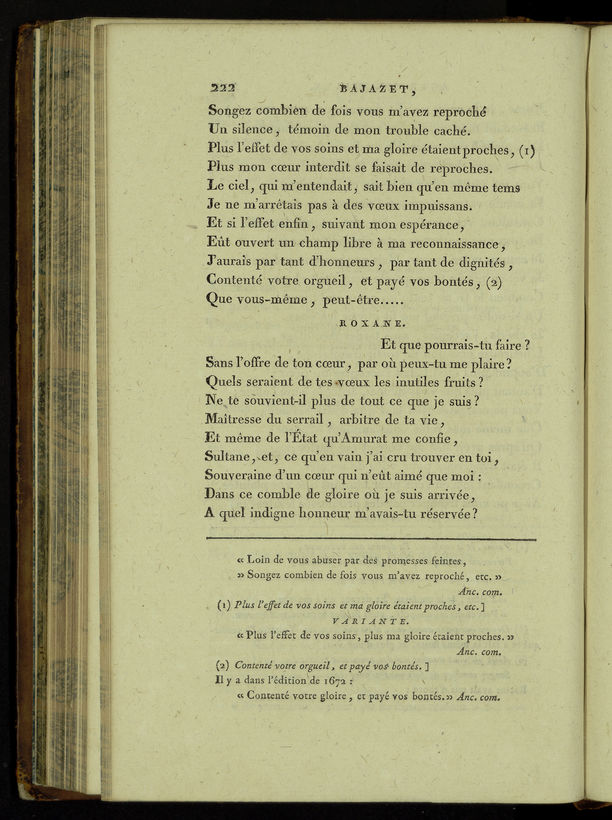 222 BAJAZET,
Songez combien de fois vous m'avez reproché
Un silence, témoin de mon trouble caché.
Plus l'effet de vos soins et ma gloire étaient proches, (1)
Plus mon cœur interdit se faisait de reproches.
Le ciel, qui m'entendait, sait bien qu'en même tems
Je ne m'arrêtais pas à des vœux impuissans.
Et si l'effet enfin, suivant mon espérance,
Eût ouvert un champ libre à ma reconnaissance,
J'aurais par tant d'honneurs, par tant de dignités,
Contenté votre orgueil, et payé vos bontés, (2)
Que vous-même, peut-être.....
ROXANE.
Et que pourrais-tu faire ?
Sans l'offre de ton cœur, par où peux-tu me plaire ?
Quels seraient de tes vœux les inutiles fruits ?
Ne te souvient-il plus de tout ce que je suis ?
Maîtresse du serrail, arbitre de ta vie,
Et même de l'État qu'Amurat me confie,
Sultane, et, ce qu'en vain j'ai cru trouver en toi,
Souveraine d'un cœur qui n'eût aimé que moi :
Dans ce comble de gloire où je suis arrivée,
A quel indigne honneur m'avais-tu réservée ?
« Loin de vous abuser par des promesses feintes,
» Songez combien de fois vous m'avez reproché, etc. »
Anc. com.
(1) Plus l'effet de vos soins et ma gloire étaient proches, etc. ]
VARIANTE.
« Plus l'effet de vos soins, plus ma gloire étaient proches. »
Anc. com.
(2) Contenté votre orgueil, et payé vos bontés. ]
Il y a dans l'édition de 1672 :
« Contenté votre gloire, et payé vos bontés. » Anc. com.